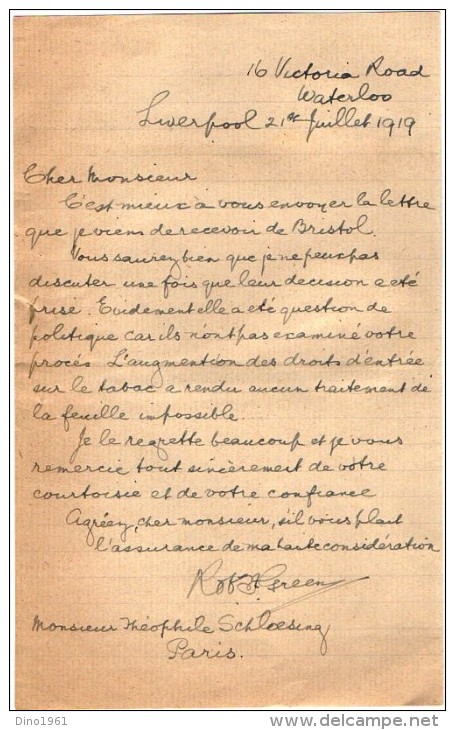 16 Victoria Road
Waterloo
Liverpool 21st Juillet 1919
Cher Monsieur
C'est mieux à vous envoyer la lettre
que je viens de recevoir de Bristol.
Vous saurez bien que je ne peux pas
discuter une fois que leur decision a eté
prise. Evidement elle a eté question de
politique car ils n'ont pas examiné votre
procés L'augmention des droits d'entrée
sur le tabac a rendu aucun traitement de
la feuille impossible.
Je le regrette beaucoup et je vous
remercie tout sincèrement de votre
courtoisie et de votre confiance
Agréez, cher monsieur, s'il vous plait
l'assurance de ma haute considération
Green
Monsieur Théophile Schloesing
Paris.
Dino1961
delcampe.net